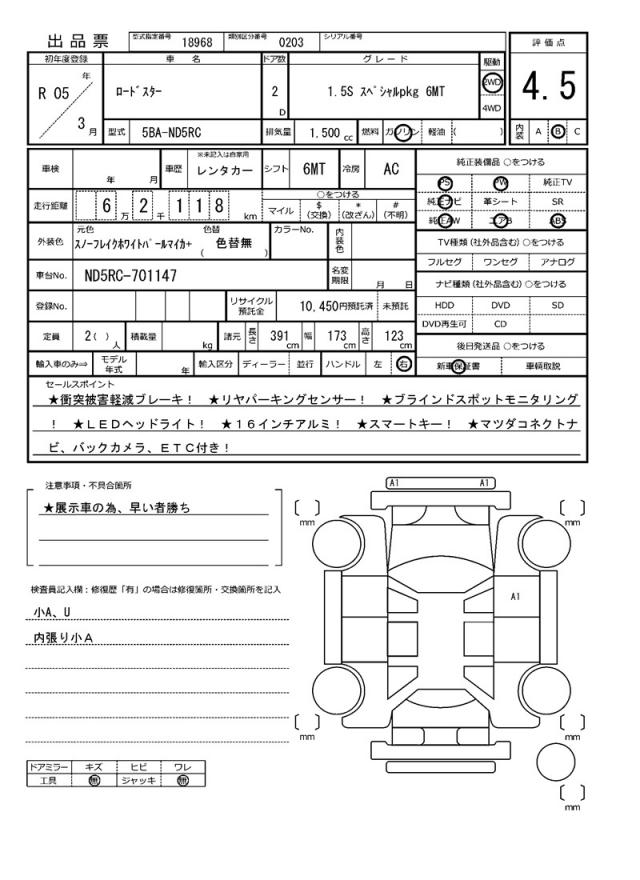 出品票 型式指定番号 18968 類別区分番号 0203 シリアル番号
評価点
初年度登録 車名 ドア数 グレード 駆動
R 05 年 ロードスター 2 D 1.5S スペシャルpkg 6MT 2WD 4.5
4WD
3 月 型式 5BA-ND5RC 排気量 1.500 cc 燃料 ガソリン 軽油 ( ) 内装 A B C
車検 年 月 車歴 ※未記入は自家用 レンタカー シフト 6MT 冷房 AC 純正装備品 ○をつける
PS PW 純正TV
走行距離 6 万 2 千 1 1 8 km ○をつける
マイル $(交換) *(改ざん) #(不明)
純正ナビ 革シート SR
純正AW エアB ABS
外装色 元色 スノーフレイクホワイトパールマイカ+ 色替 ( 色替無 ) カラーNo. 内装色
TV種類 (社外品含む) ○をつける
フルセグ ワンセグ アナログ
車台No. ND5RC-701147 名変期限 月 日
ナビ種類 (社外品含む) ○をつける
登録No. リサイクル預託金 10,450円預託済 未預託 HDD DVD SD
DVD再生可 CD
定員 2( ) 人 積載量 kg 諸元 長さ 391 cm 幅 173 cm 高さ 123 cm
後日発送品 ○をつける
輸入車のみ⇒ モデル年式 年 輸入区分 ディーラー 並行 ハンドル 左 右 新車保証書 車輌取説
セールスポイント
★衝突被害軽減ブレーキ! ★リヤパーキングセンサー! ★ブラインドスポットモニタリング
! ★LEDヘッドライト! ★16インチアルミ! ★スマートキー! ★マツダコネクトナ
ビ、バックカメラ、ETC付き!
注意事項・不具合箇所
★展示車の為、早い者勝ち
A1 A1
mm mm
検査員記入欄:修復歴「有」の場合は修復箇所・交換箇所を記入
小A、U
内張り小A
A1
mm mm
ドアミラー キズ ヒビ ワレ
工具 無 ジャッキ 無
mm